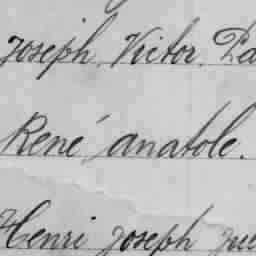 Joseph Victor
René Anatole.
Henri Joseph